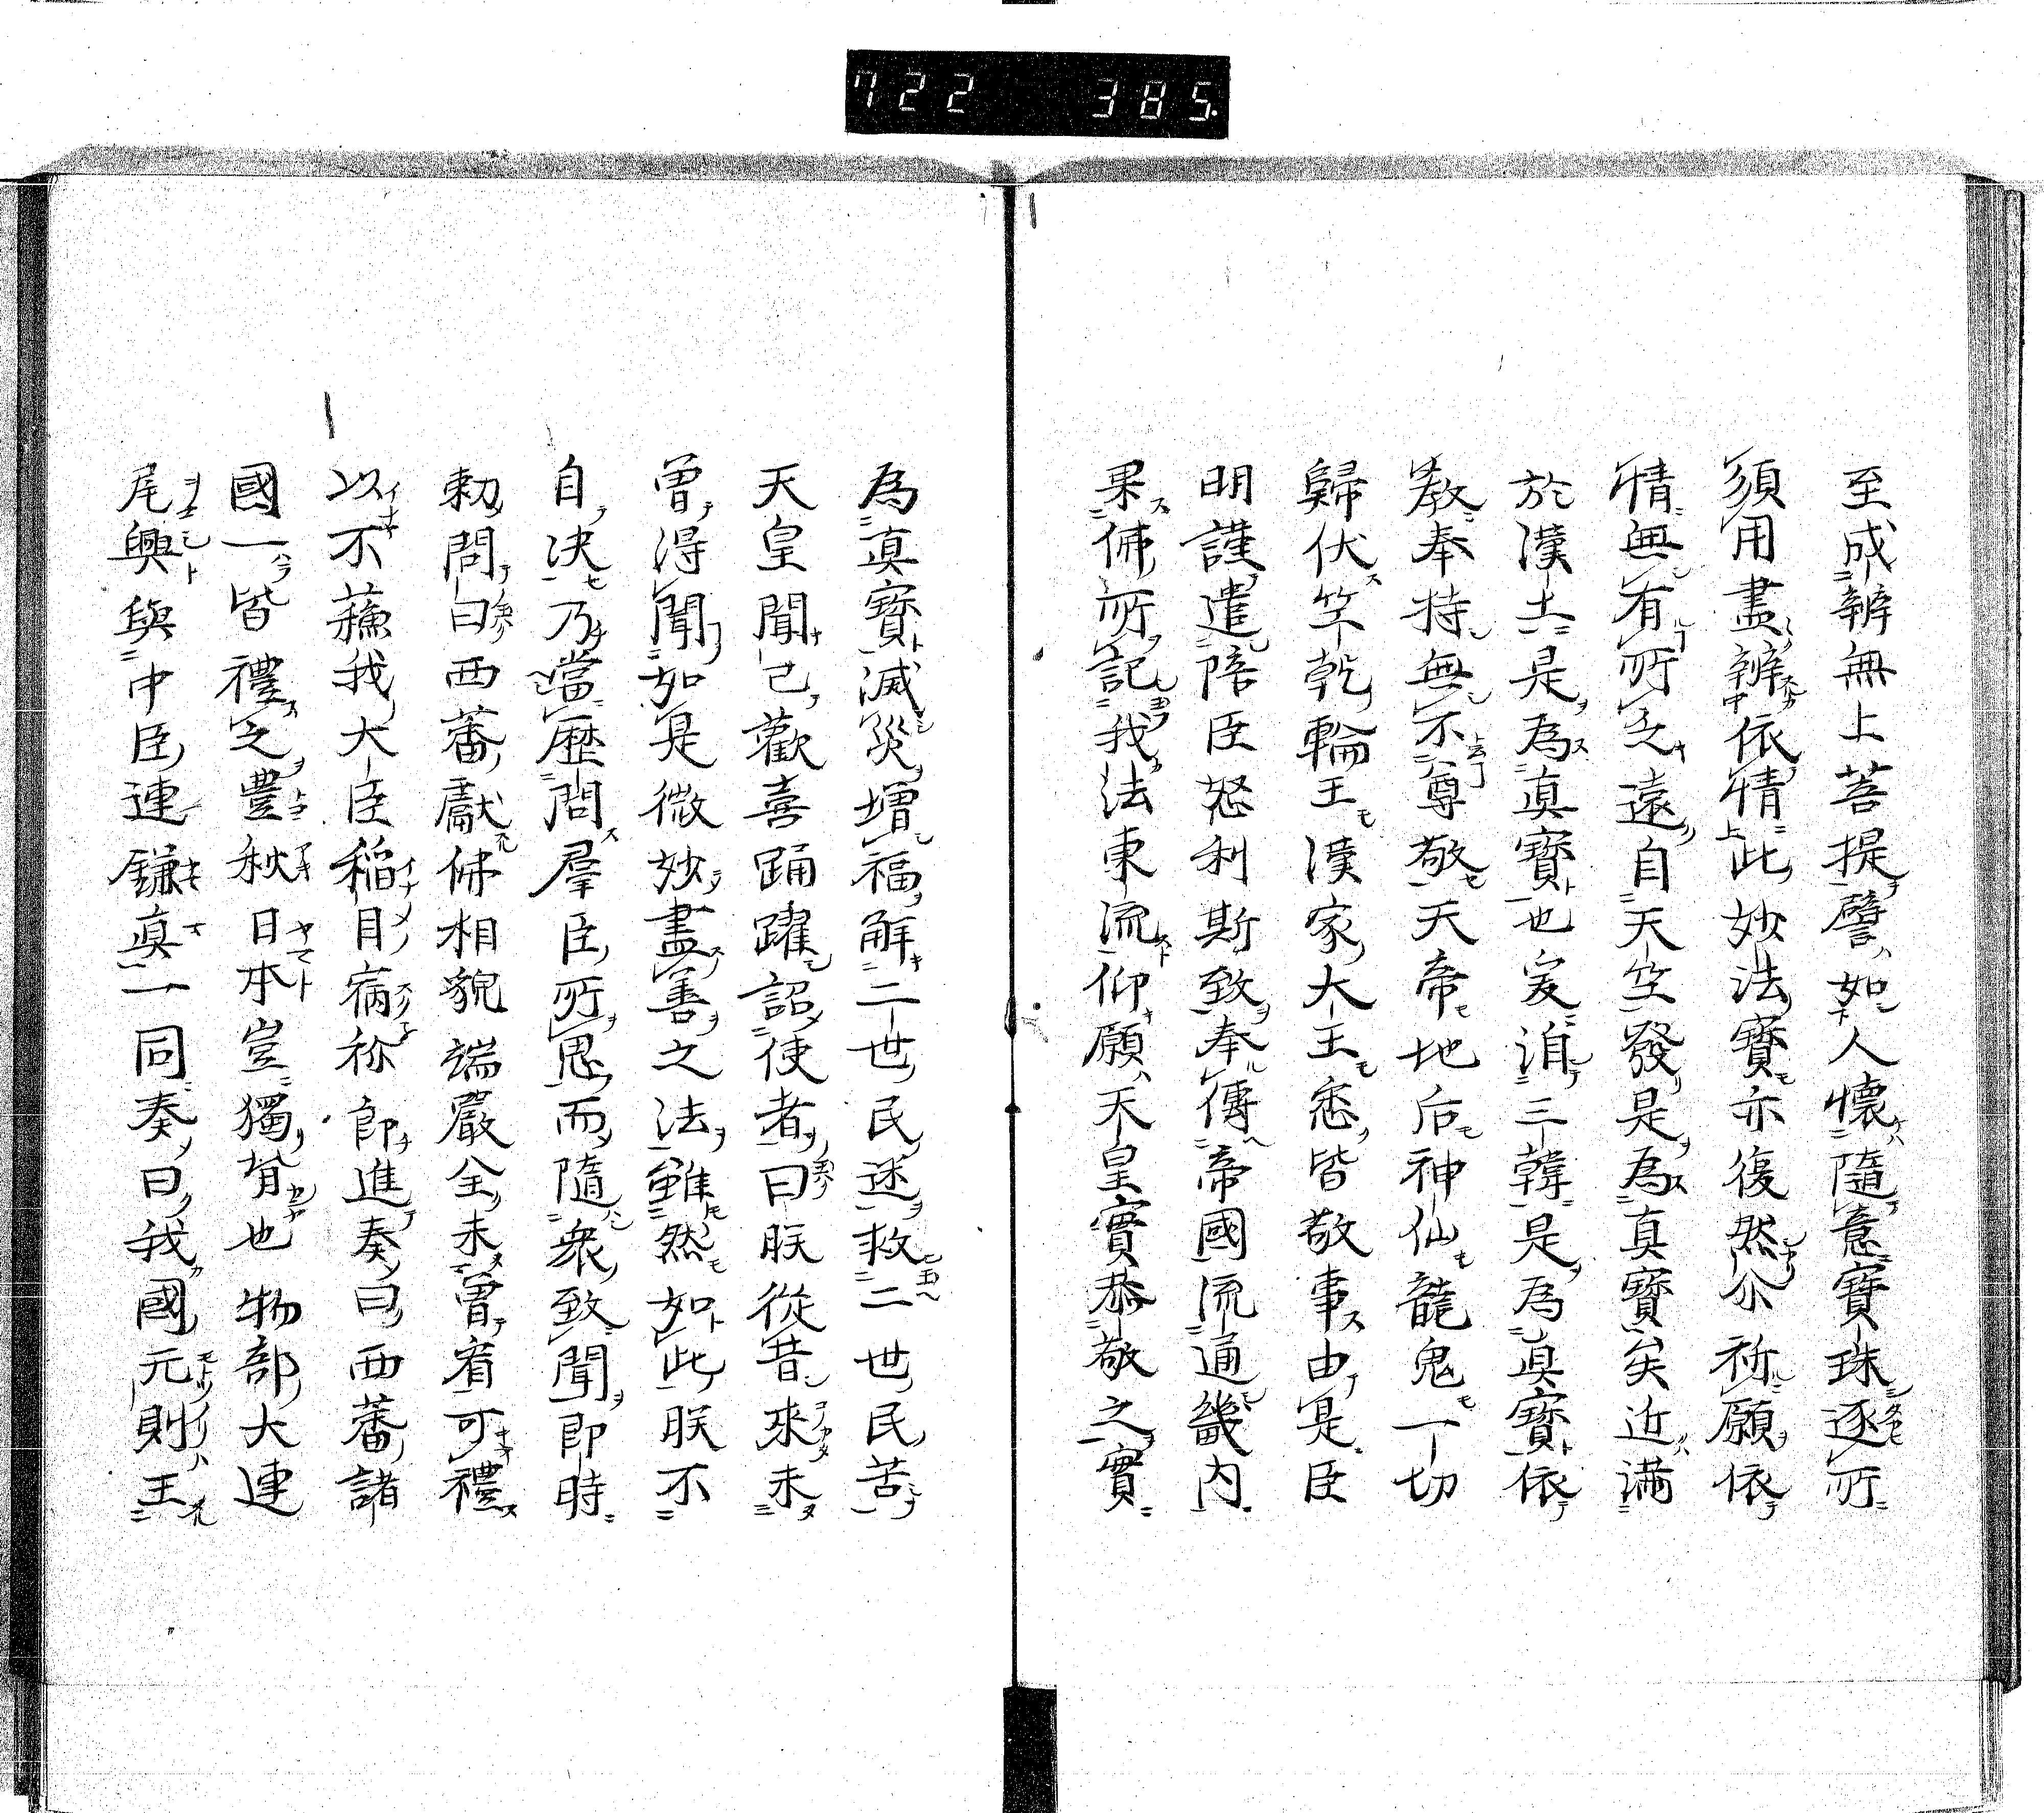 722 385.
至成辨無上菩提譬如人懷隨意寶珠逐所
須用盡辨依情此妙法寶亦復然尒祈願依
情無有所乏遠自天竺發是為真寶矣近満
於漢土是為真寶也爰洎三韓是為真寶依
教奉持無不尊敬天帝地后神仙龍鬼一切
歸伏竺乾輪王漢家大王悉皆敬事由是臣
明謹遣陪臣怒利斯致奉傳帝國流通畿内
果佛所記我法東流仰願天皇實恭敬之實
為真寶滅災増福解二世民迷救二世民苦
天皇聞已歡喜踊躍詔使者曰朕從昔來未
曽得聞如是微妙盡善之法雖然如此朕不
自決乃當歷問羣臣所思而隨衆致聞即時
勅問曰西蕃獻佛相貌端嚴全未曽看可禮
以不蘓我大臣稲目病祢即進奏曰西蕃諸
國一皆禮之豊秋日本豈獨背也物部大連
尾興與中臣連鎌真一同奏曰我國元則王